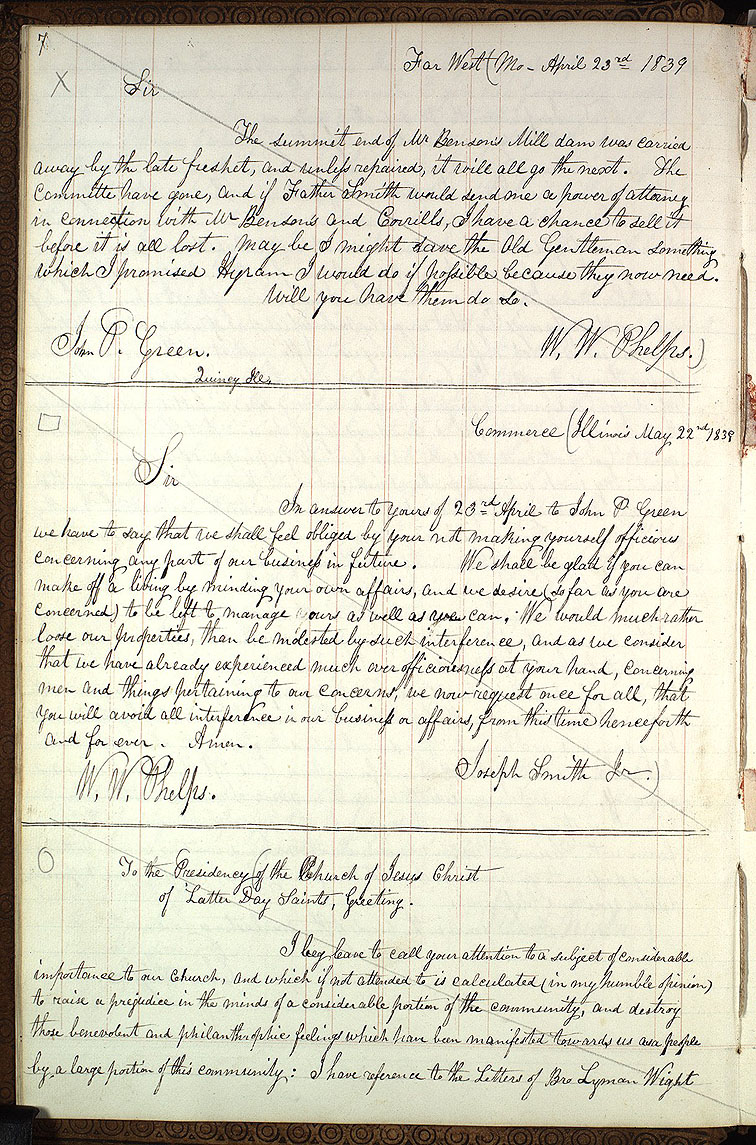 7
X
Far West (Mo - April 23rd 1839
Sir
The summit end of Mr Benson's Mill dam was carried
away by the late freshet, and unless repaired, it will all go the next. The
Committe have gone, and if Father Smith would send me a power of attorney
in connection with Mr Bensons and Corrills, I have a chance to sell it
before it is all lost. May be I might save the Old Gentleman something
which I promised Hyram I would do if possible because they now need.
Will you have them do so.
John P. Green.
W. W. Phelps.)
Quincy Ill.
Commerce (Illinois May 22nd 1839
Sir
In answer to yours of 23rd April to John P Green
we have to say that we shall feel obliged by your not making yourself officious
concerning any part of our business in future. We shall be glad if you can
make off a living by minding your own affairs, and we desire (so far as you are
concerned) to be left to manage ours as well as we can. We would much rather
loose our properties, than be molested by such interference, and as we consider
that we have already experienced much over officiousness at your hand, concerning
men and things pertaining to our concerns, we now request once for all, that
you will avoid all interference in our business or affairs, from this time henceforth
and for ever. Amen.
W. W. Phelps.
Joseph Smith Jr.)
To the Presidency (of the Church of Jesus Christ
of Latter Day Saints, Greeting.
I beg leave to call your attention to a subject of considerable
importance to our Church, and which if not attended to is calculated (in my humble opinion)
to raise a prejudice in the minds of a considerable portion of the community, and destroy
those benevolent and philanthrophic feelings which have been manifested towards us as a people
by a large portion of this community: I have reference to the Letters of Bro Lyman Wight